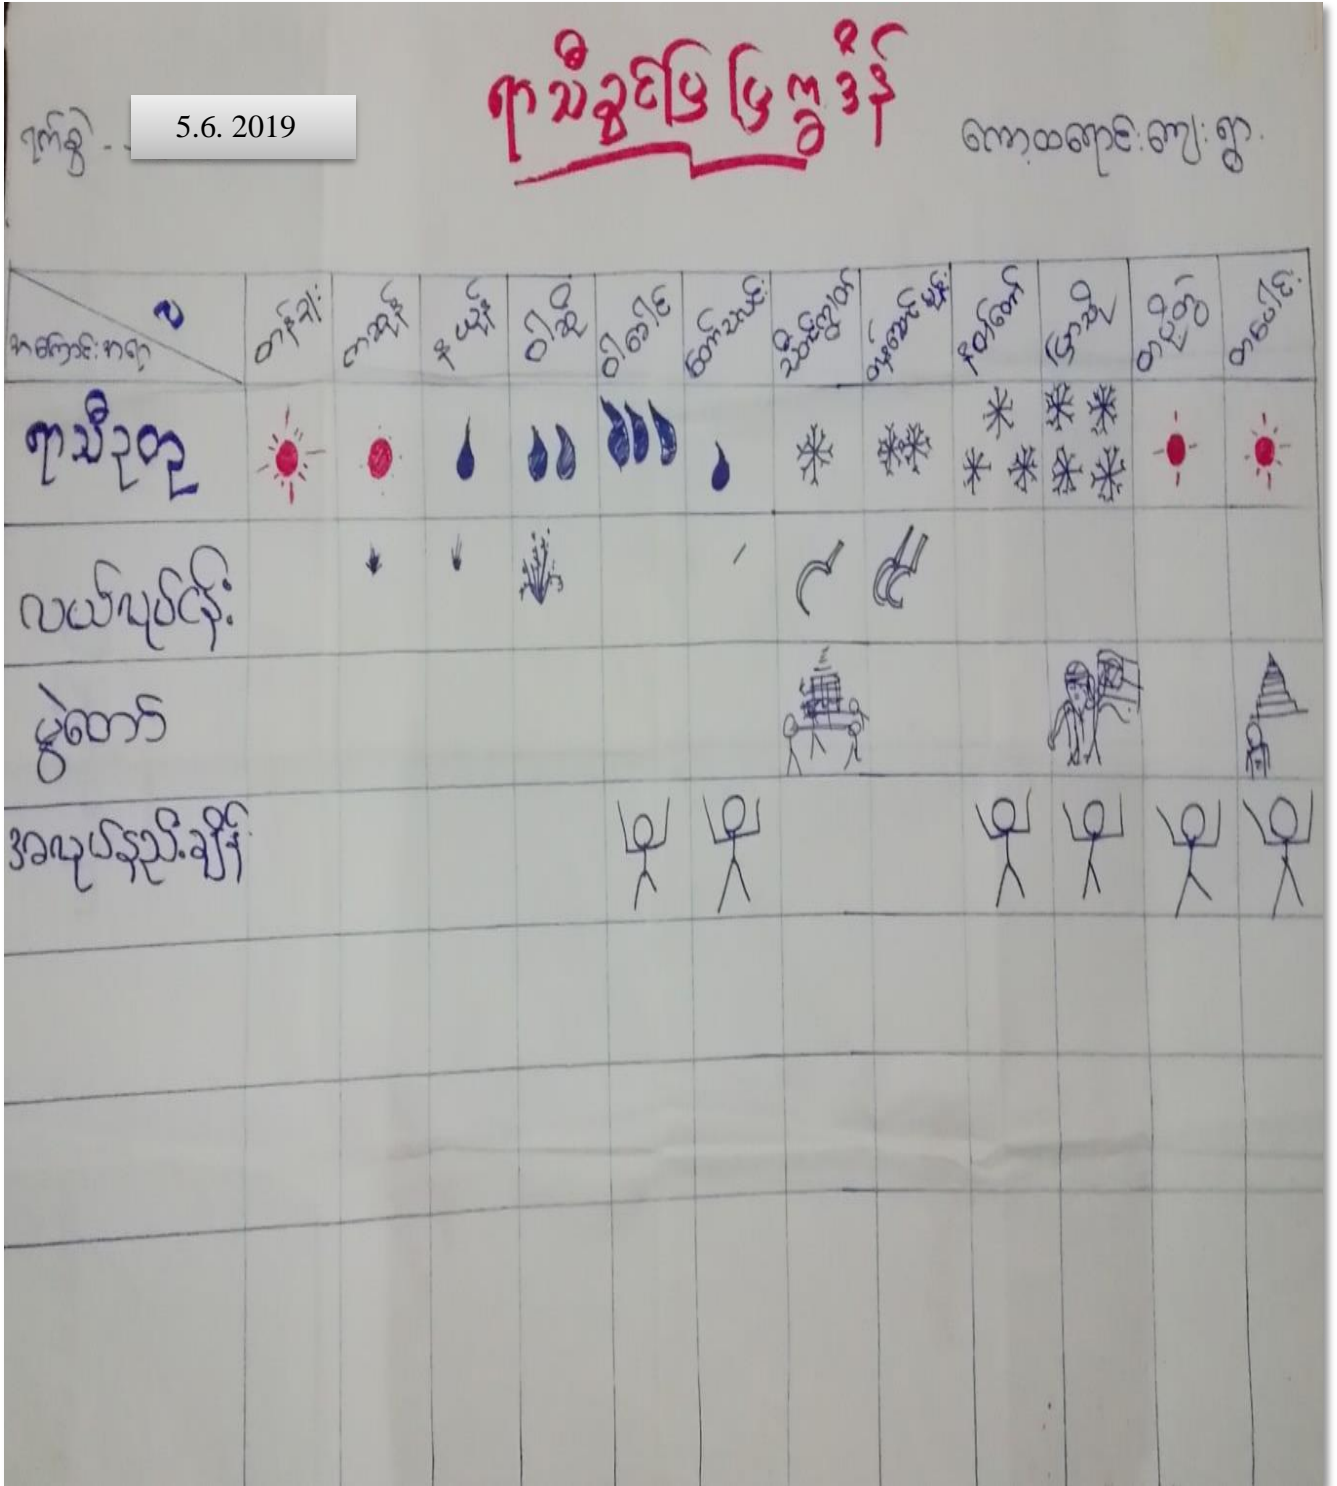 ရာသီခွင်ပြ ပြက္ခဒိန်
ရက်စွဲ - 5.6. 2019
ကော့ထရောင်းကျေးရွာ
လ
အကြောင်းအရာ
တန်ခူး ကဆုန် နယုန် ဝါဆို ဝါခေါင် တော်သလင်း သီတင်းကျွတ် တန်ဆောင်မုန်း နတ်တော် ပြာသို တပို့တွဲ တပေါင်း
ရာသီဥတု
လယ်လုပ်ငန်း
ပွဲတော်
အလုပ်နည်းချိန်